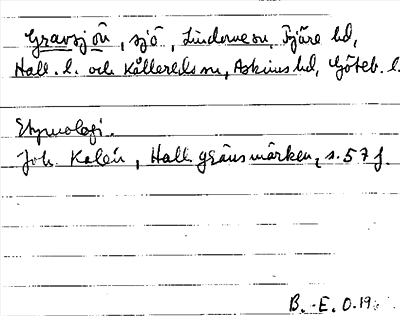 Gravsjön, sjö, Lindome sn, Fjäre hd,
Hall. l. och Kållereds sn, Askims hd, Göteb. l.
Etymologi.
Joh. Kalén, Hall. gränsmärken, s. 57 f.
B. E. O. 19